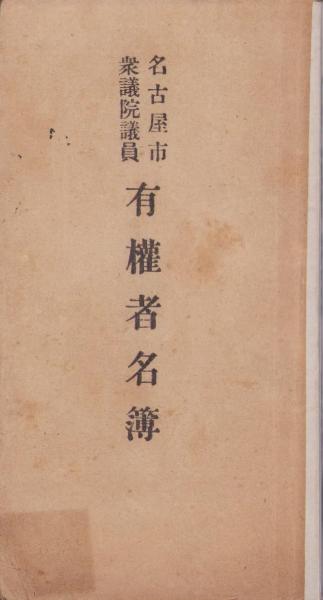 名古屋市
衆議院議員
有權者名簿